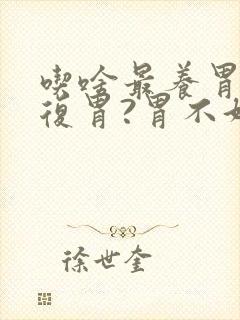 喫啥最養胃
復胃?胃不好
徐世奎